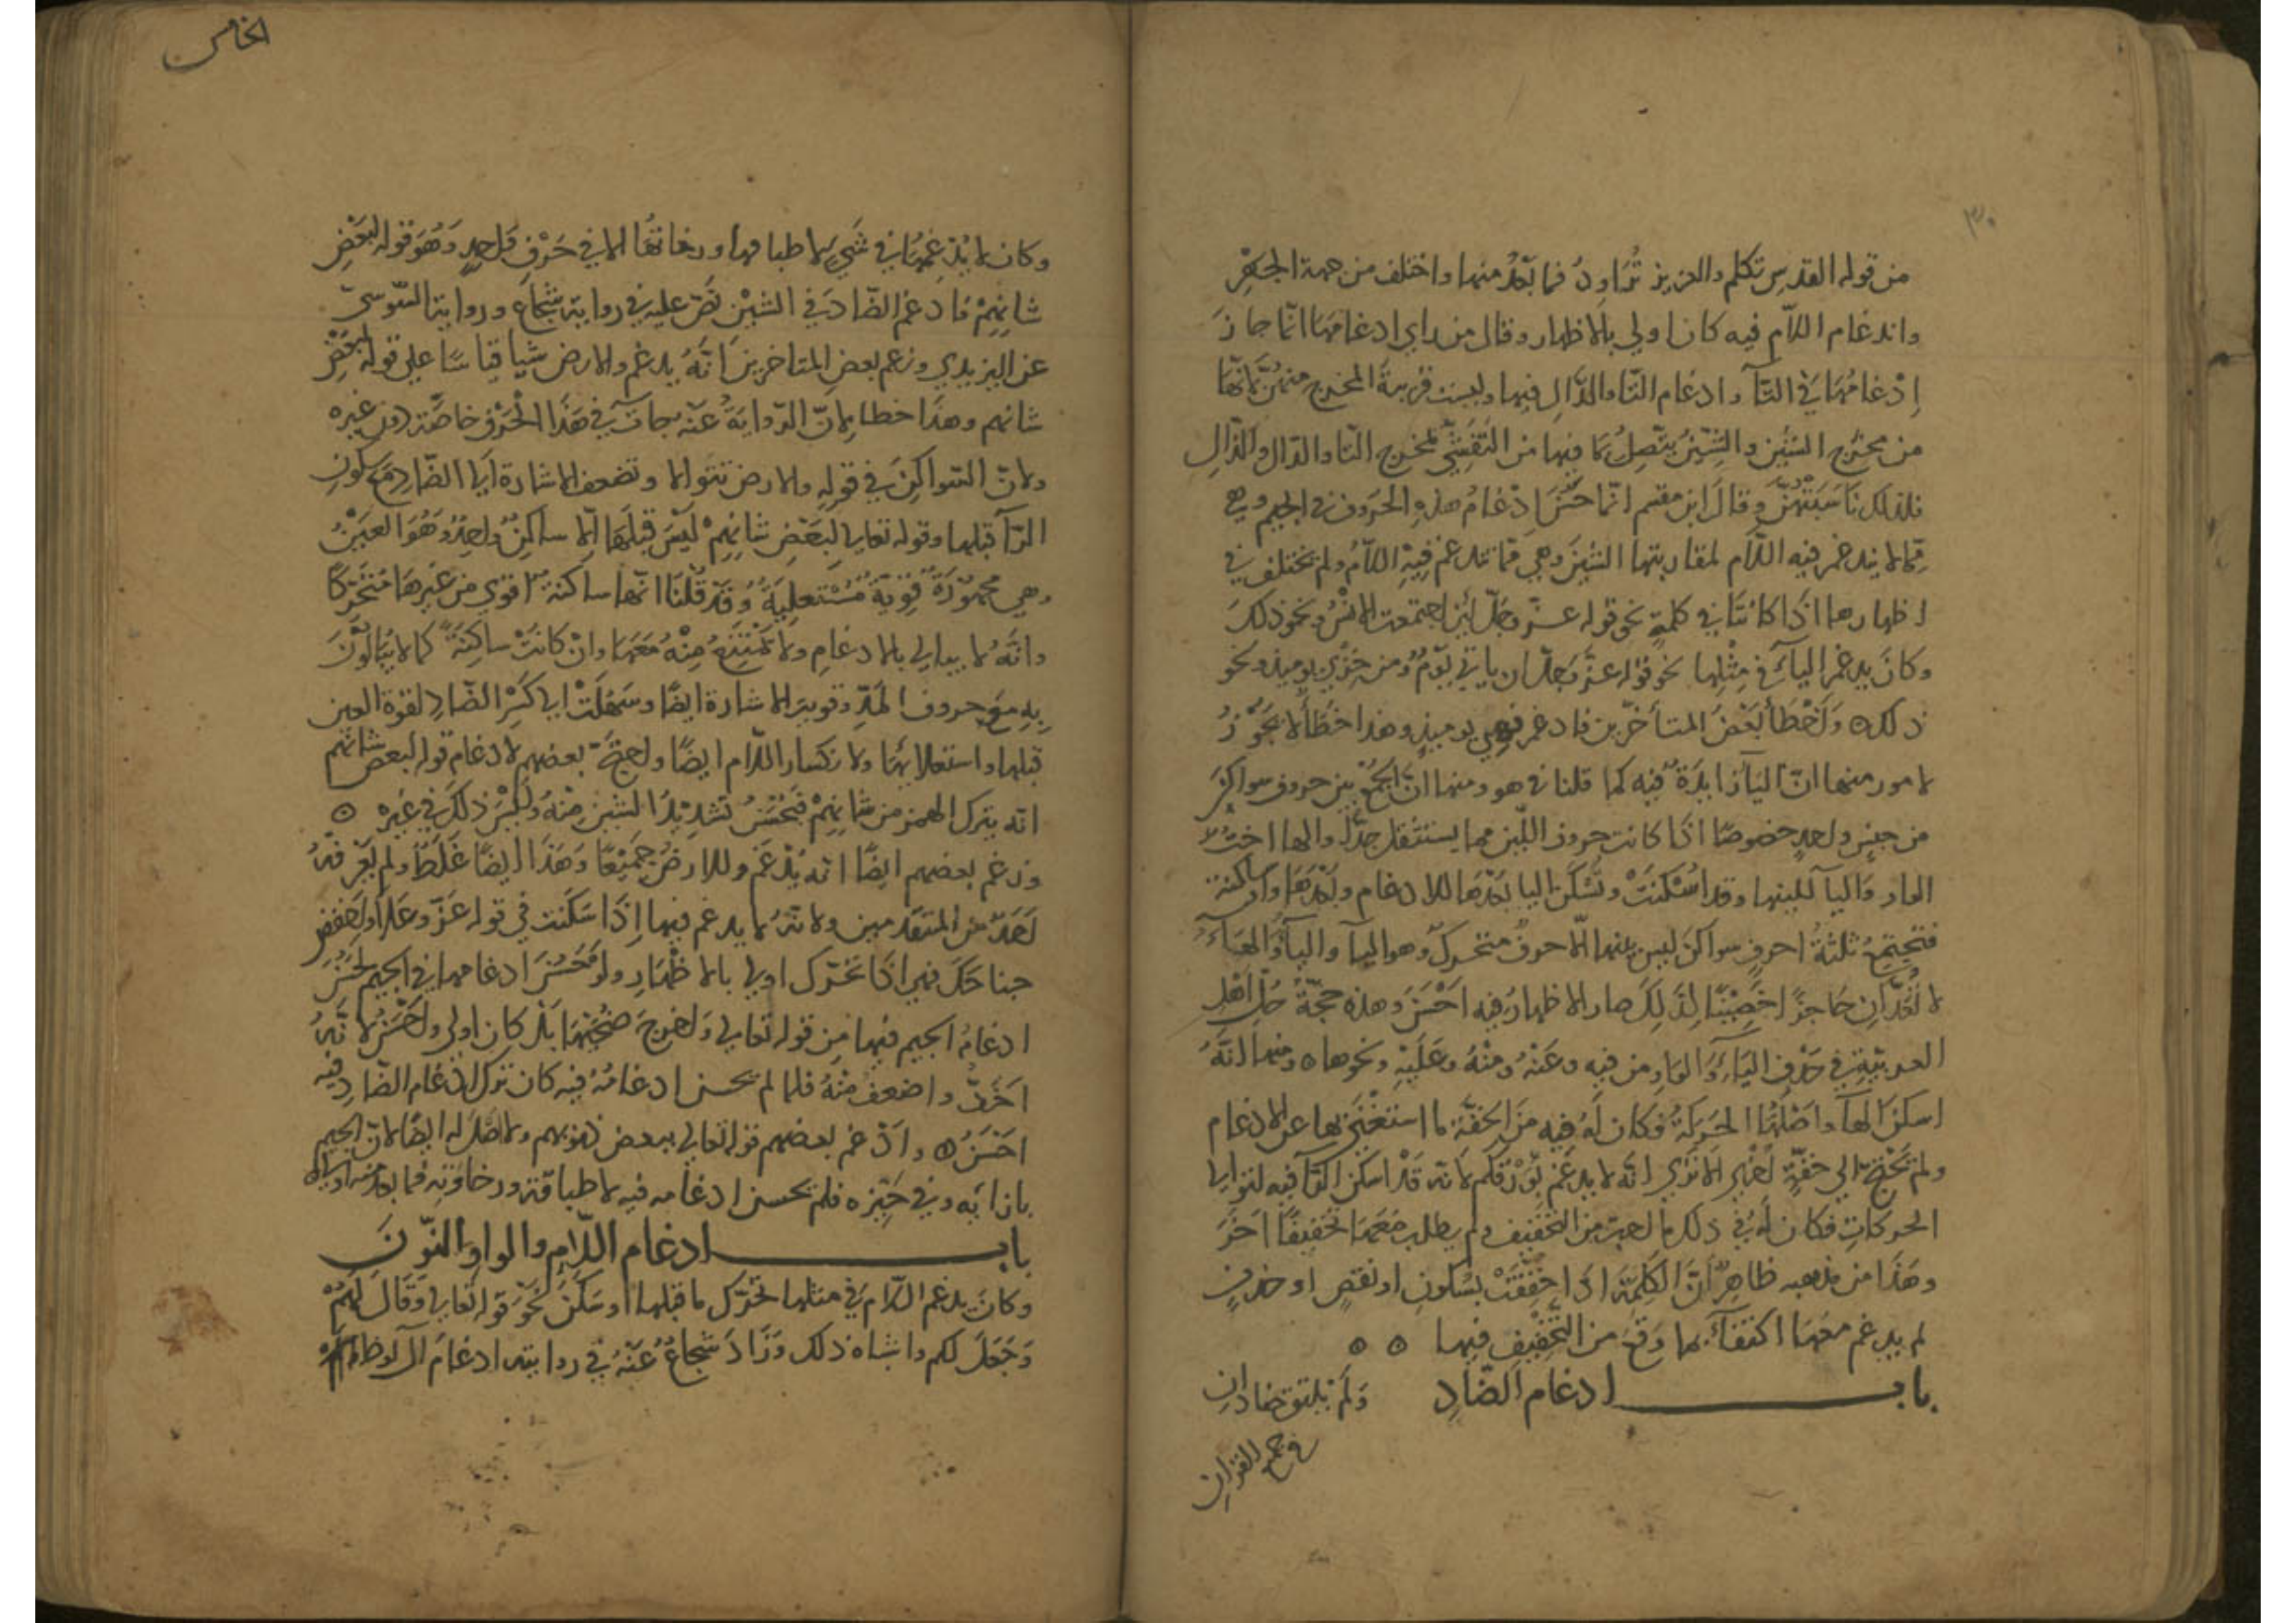 ٣٠
من قوله القدس تكلم والعزيز تراود فما بعد منها واختلف من جهة الجهر
واندغام اللّام فيه كان اولي بالاظهار وقال من راي ادغامها انّما جاز
إدغامها في التآ وادغام التّا والدّالِ فيها وليست قريبة المخرج منهنّ لانّها
من مخرج الشين والشِّينُ يتّصِلُ بما فيها من التّفشّي لمخرج التّا والدّال والذّالِ
فلذلك ناسَبَتْهُنّ وقالَ ابن مقسم انّما حَسُنَ ادْغامُ هذهِ الحروف في الجيم وهي
ممّا لا يندغم فيه اللّام لمقاربتها الشّينَ وهي ممّا تندغم فيهِ اللّامُ ولم يختلف في
اظهارها اذا كانتا في كلمةٍ نحو قوله عزّ وجلّ لئن اجتمعت الانسُ ونحو ذلك
وكانَ يدغم اليآءَ في مِثْلِها نحو قوله عزّ وجلّ ان ياتي يَوْمٌ ومن خِزْي يوميذ ونحو
ذلك وَاَخْطَأ بَعْضُ المتأخّرين فادغم فهي يوميذٍ وهذا خَطَأ لا يَجُوْزُ
لامور منها انّ اليآ زايدَةٌ فيه كما قلنا في هو ومنها انّ الجمْع بين حروف سواكنَ
من جنسٍ واحدٍ خصوصًا اذا كانت حروف اللّين مما يستثقل جدًّا والها اختُ
الواو وَاليآ للينها وقد اُسْكنَتْ وتُسَكَّن اليا بَعْدَها للادغام وبَعْدَهَا واو ساكنة
فتجتمعُ ثلثةُ احرفٍ سواكنَ ليس بينها الّا حرفٌ متحركٌ وهو اليآ واليآءُ والهَآءُ
لا تُعَدّانِ حاجزًا حَصِيْنًا لِذَلِكَ صار الاظهارُ فيه اَحْسَنَ وَهذه حجّةُ جُلِّ اَهْلِ
العربيّةِ في حَذْفِ اليَآءِ وَالوَاوِ من فيه وعَنْهُ ومنْهُ وعَلَيْهِ ونحوها ومنها انّهُ
اسكنَ الهآ واَصْلُهَا الحَرَكَةُ فكان لَهُ فيه مِنَ الخفّة ما استَغْنَى بها عن الادغام
ولم يَحْتَجْ الي خفّةٍ اُخْرى الا تَرَي انّه لا يدغم بِوَرْقِكم لانّه قَدْ اسكن الرّا فيه لتوالي
الحركاتِ فكان لَهُ في ذلك ما احبّ من التّخفيف ولم يطلب معَهَا تخفيفًا اخرَ
وهَذَا من مذهبه ظاهرٌ انَّ الكَلِمَةَ اذا خفّفَتْ بسُكونٍ او نقصٍ او حذفٍ
لم يدغم معَها اكتفآءً بما وقعَ من التّخفيفِ فيها
باب ادغام الضّادِ وَلَمْ يلتق ضادانِ
في جميع القران
الخامس
وكان لا يُدْغِمُهَا في شَيءٍ لاطباقها ورخاوتها الا في حَرْفٍ وَاحِدٍ وَهُوَ قوله لبَعْضِ
شانِهِمْ فادغم الضّادَ في الشّيْن نَصّ عليه في رواية شجاعٍ ورواية السّوسيّ
عن اليزيدي وزعم بعض المتاخرينَ انّهُ يدغم والارض شيا قياسًا علي قوله لبَعْضِ
شانهم وهذا خطا لانّ الرّوايَةَ عَنْهُ جاتْ في هَذَا الحَرْفِ خاصّةً دون غيره
ولانّ السّواكِنَ في قولهِ والارض تتوالا وتضعف الاشارة اِلي الضّادِ مَعَ سكونِ
الرّآ قبلها وقوله تعالي لبَعْضِ شانِهِمْ لَيْسَ قبلَهَا اِلّا ساكِنٌ واحِدٌ وَهُوَ العَيْنُ
وهي مجهوْرَةٌ قويّةٌ مُسْتعلِيَةٌ وَقَدْ قُلْنَا انّها ساكنةً اقوي من غَيْرِهَا مُتَحَرّكًا
وانّهُ لا يبالي بالادغامِ ولا تَمْتَنِعُ مِنْهُ مَعَهَا وانْ كانَتْ ساكِنَةً كما لا يُبَالُوْنَ
بِهِ مَعَ حروفِ المَدِّ وقوِيت الاشارة ايضًا وسَهُلَتْ الي كَسْرِ الضّادِ لقوّة العين
قبلها واستعلائها ولانكسار اللّام ايضًا واحتجّ بعضهم لادغام قوله لبعض شانهم
انّه يترك الهمز من شانِهِمْ فيَحْسُنُ تشديْدُ الشين مِنْهُ ولَيْسَ ذلكَ في غَيْره
وزعم بعضهم ايضًا انّه يُدْغم وللارض جَمِيْعًا وَهَذَا ايضًا غَلَطٌ ولم يَعْرِفْهُ
اَحَدٌ من المتقدّمين ولانّهُ لا يدغم فيها اِذَا سَكَنت في قوله عَزّ وعَلا وَاخفض
جناحَكَ فهي اذا تحَرّك اولي بالاظْهَارِ ولو حَسُنَ ادغامها في الجيم لحَسُنَ
ادغامُ الجيم فيها مِن قوله تعالي وَاخرَجَ ضحَيهَا بَلْ كان اولي واحْسَنُ لانّهُ
اخَفُّ واضعفُ مِنْهُ فلما لم يحسن ادغامُهُ فيه كان تركُ ادْغام الضّادِ فيه
احْسَنُ وادْغم بعضهم قوله تعالي ببعض ذنوبهم ولا اصْلَ له ايضًا لانّ الجيم
بازائه وفي حَيّزه فلم يحسن ادغامه فيه لاطباقه ورخاوتِهِ فما بعد منه اولاه
باب ادغام اللّامِ والواو والنّونَ
وكانَ يدغم اللّامَ في مثلها تحرّك ما قبلها اوسَكَنَ نحوَ قوله تعالي وَقَالَ لهُمْ
وَجَعَلَ لكم واشباه ذلك وَزَادَ شجاعٌ عَنْهُ في روايته ادغامَ آل لوط